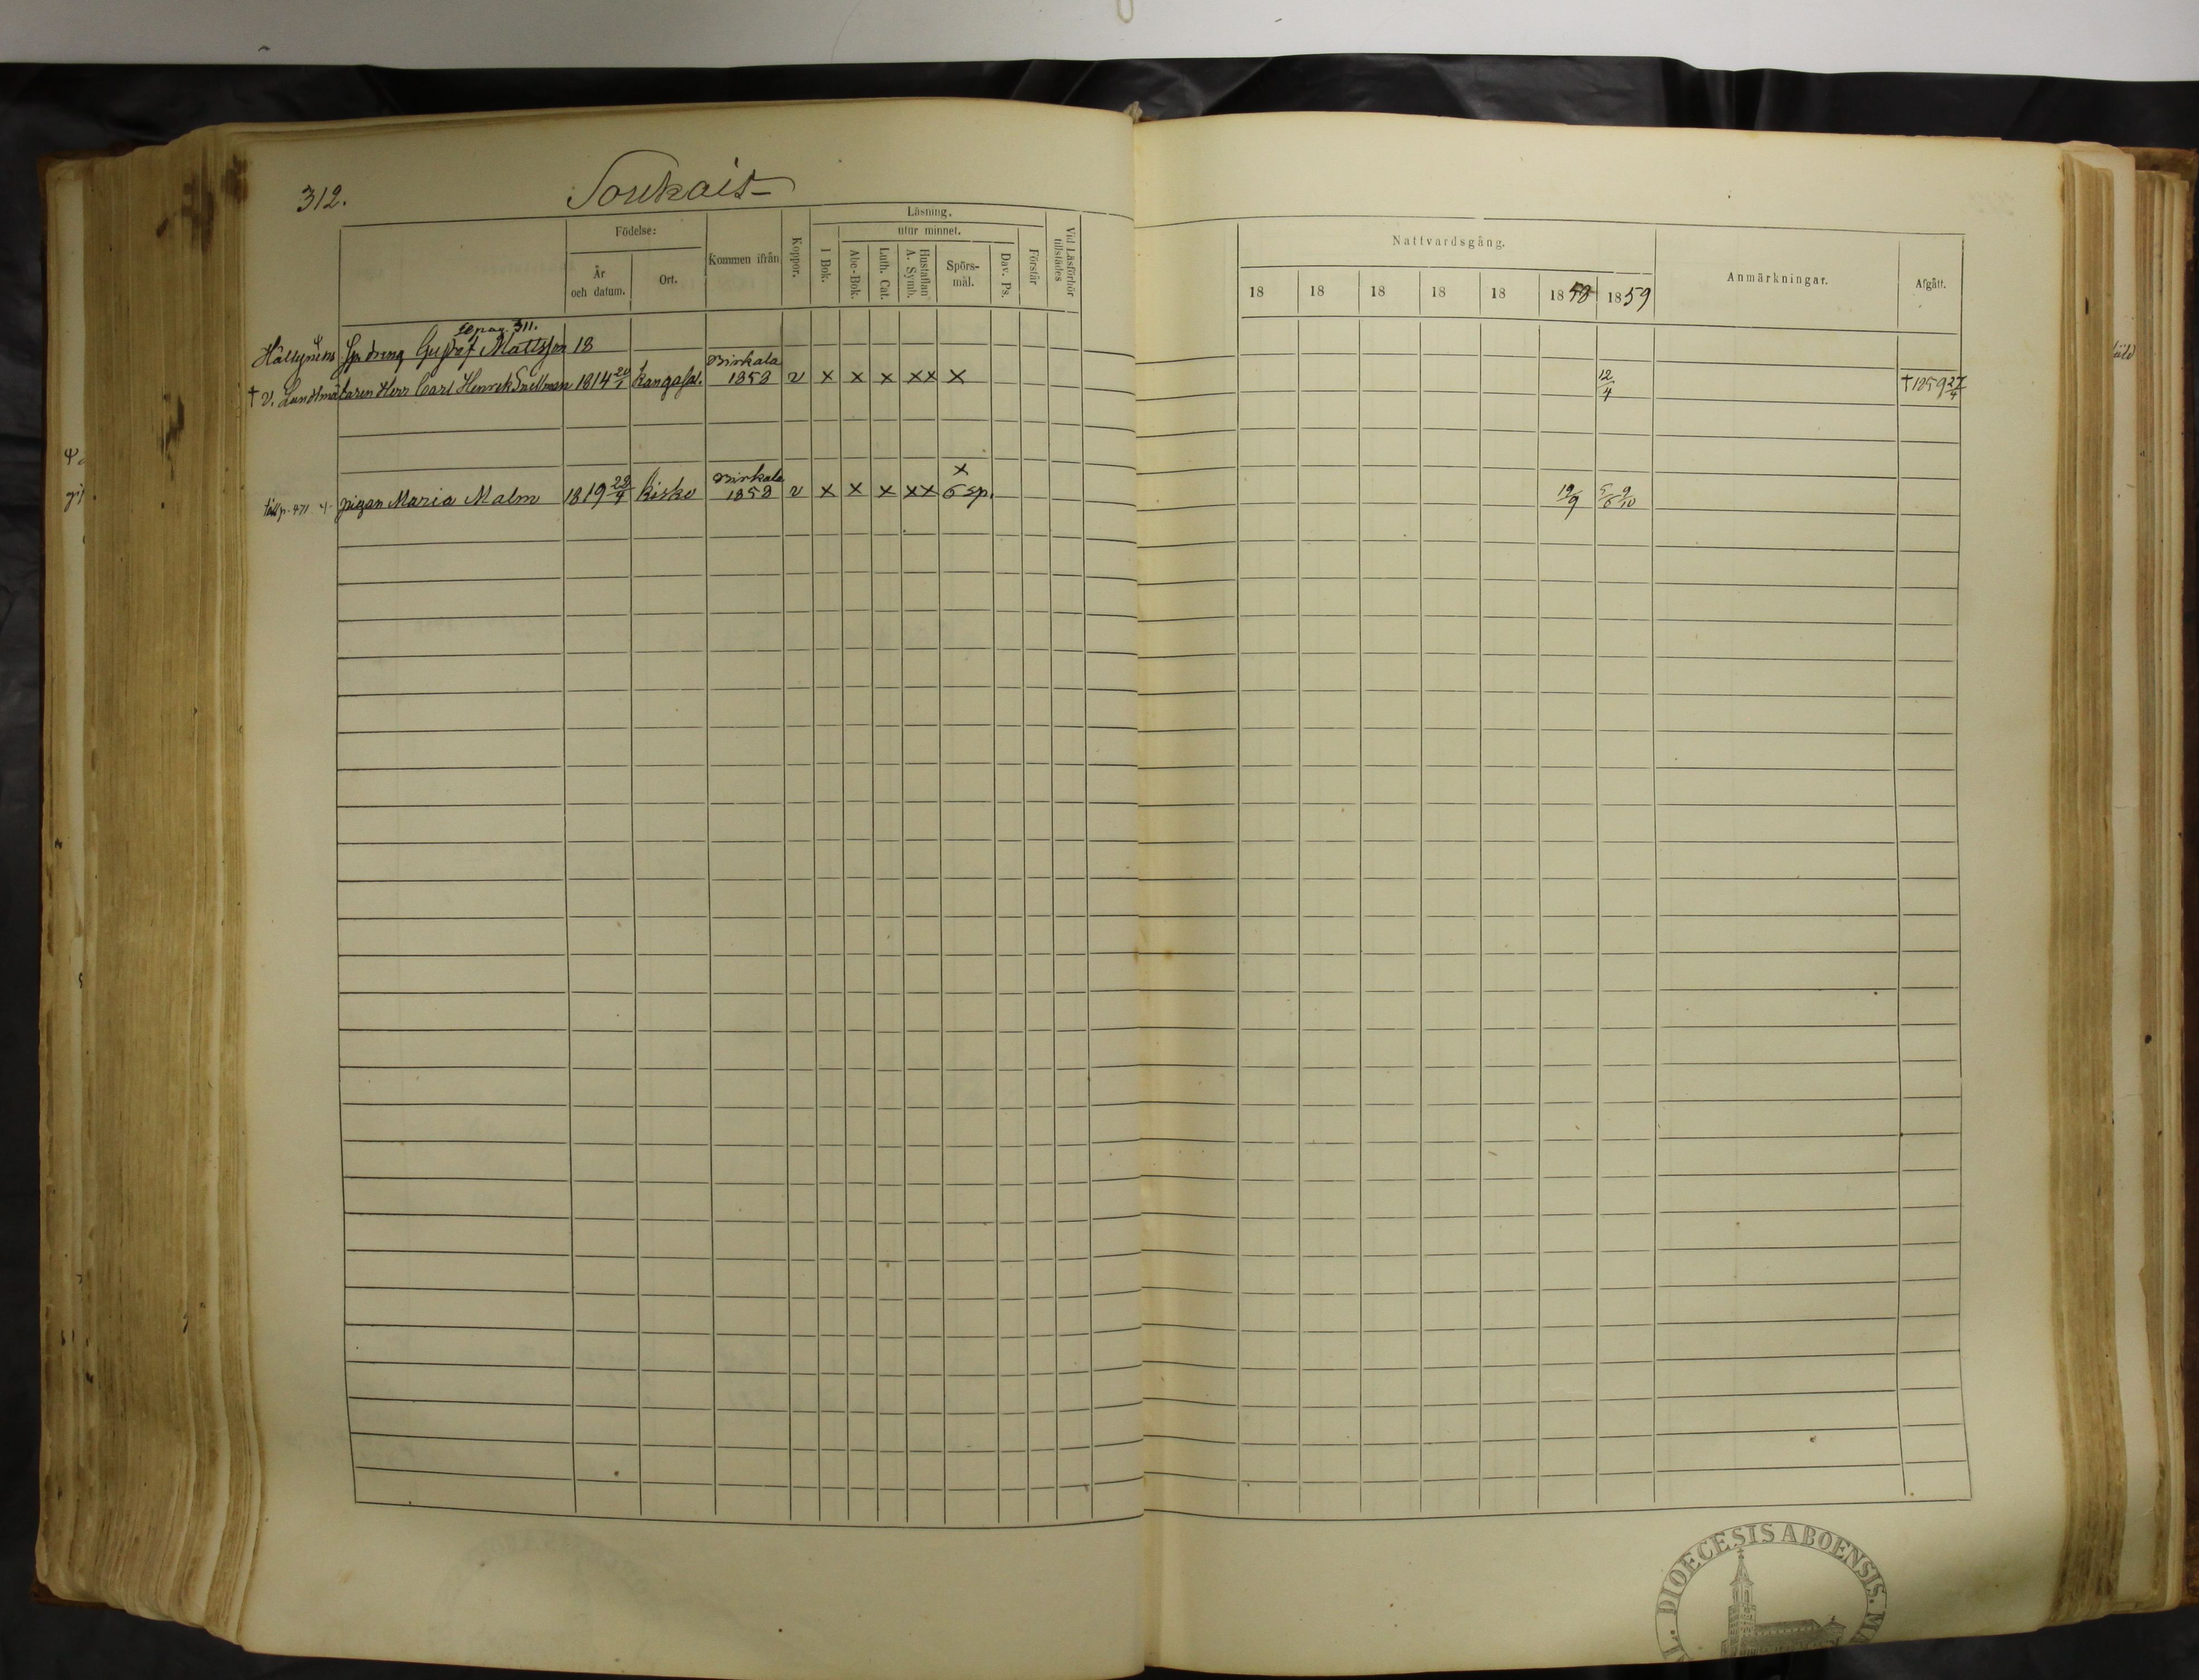 312.
Soukais
Födelse:
År och datum.
Ort.
Kommen ifrån
Koppor.
Läsning.
utur minnet.
I Bok.
Abc-Bok.
Luth. Cat.
Hustaflan A. Symb.
Spörsmål.
Dav. Ps.
Förstår
Vid Läsförhör tillstädes
Nattvardsgång.
18 18 18 18 18 1858 1859
Anmärkningar.
Afgått.
se pag. 311.
Gustaf Mattsson 18
† v. Landtmätaren Herr Carl Henrik Snellman 1814 20/1 Kangasal. Birkala 1858 v x x x xx x 12/4 † 1859 27/4
pigan Maria Malm 1819 28/4 Kisko Birkala 1858 v x x x xx x 6 sp. 19/9 5/6 9/10
DIOECESIS ABOENSIS. MA